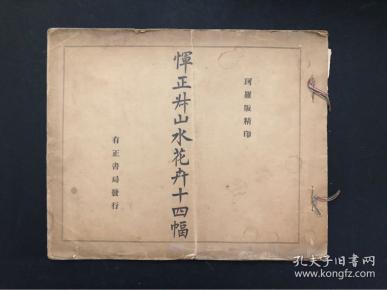 珂羅版精印
惲正叔山水花卉十四幅
有正書局發行
孔夫子旧书网